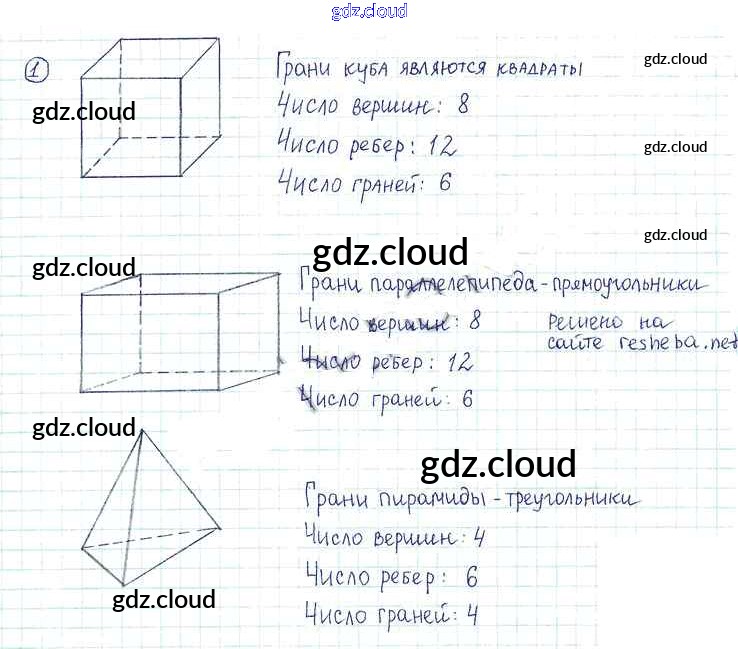 gdz.cloud
1
Грани куба являются квадраты
gdz.cloud
gdz.cloud
Число вершин: 8
Число ребер: 12
gdz.cloud
Число граней: 6
gdz.cloud
gdz.cloud
gdz.cloud
Грани параллелепипеда - прямоугольники
Число вершин: 8
Решено на
сайте resheba.net
Число ребер: 12
Число граней: 6
gdz.cloud
gdz.cloud
Грани пирамиды - треугольники
Число вершин: 4
Число ребер: 6
gdz.cloud
Число граней: 4